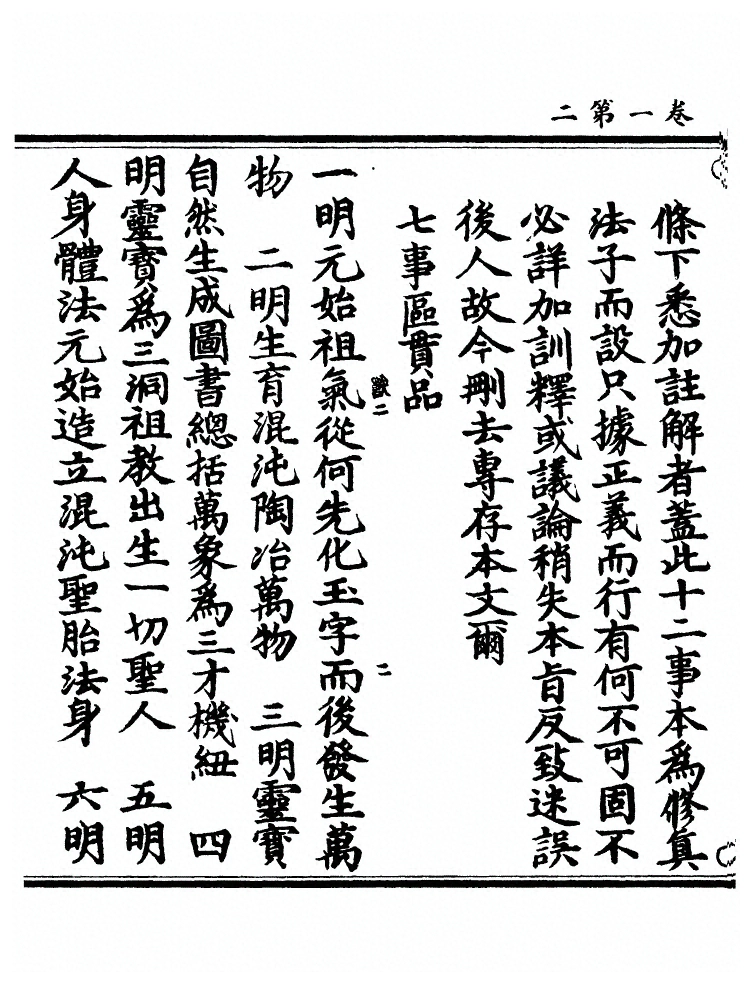 卷一第二
條下悉加註解者蓋此十二事本為修真
法子而設只據正義而行有何不可固不
必詳加訓釋或議論稍失本旨反致迷誤
後人故今刪去專存本文爾
七事區貫品
一明元始祖氣從何先化玉字而後發生萬
物　二明生育混沌陶冶萬物　三明靈寶
自然生成圖書總括萬象為三才機紐　四
明靈寶為三洞祖教出生一切聖人　五明
人身體法元始造立混沌聖胎法身　六明
二
二